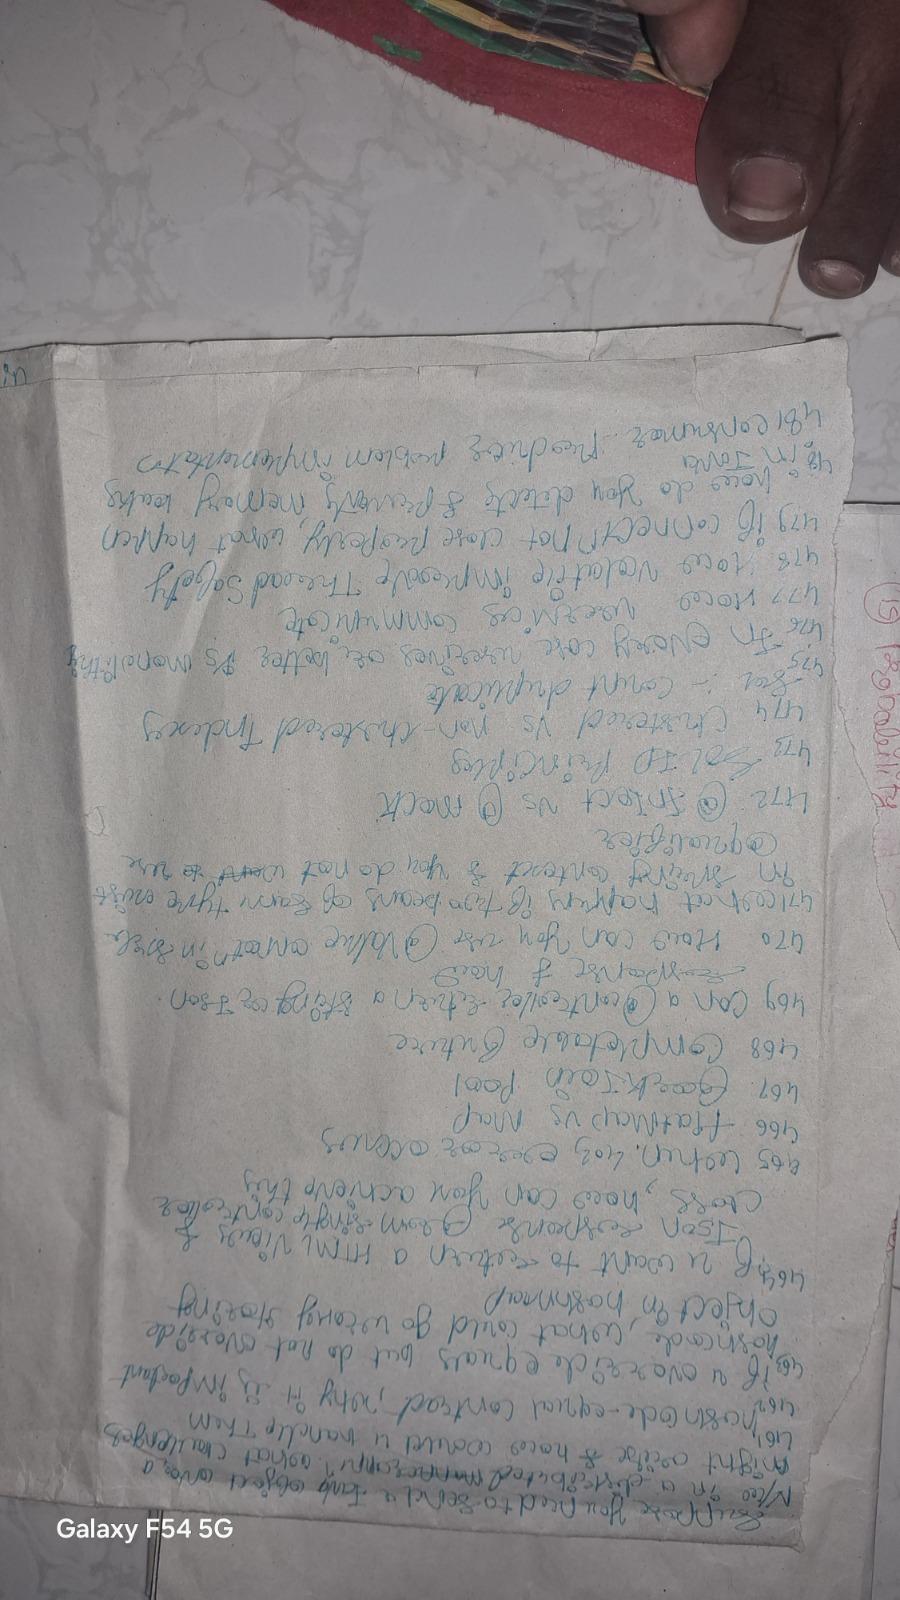 Suppose you need to send a Java object over a
N/w in a distributed manner app what challenges
might arise & how would u handle them
461
462 hashcode-equal contract, why it is important
463 if u override equals but do not override
hashcode, what could go wrong storing
object in hashmap
464 if u want to return a HTML views &
Json response from single controller
class, how can you achieve this
465 when 403 error occurs
466 flatMap vs Map
467. ForkJoin Pool
468 Completable future
469 Can a @controller return a string or Json
response & how
470 How can you use @Value annotn in
471 what happens if two beans of same type exist
in spring context & you do not want to use
@qualifier
472 @ Inject vs @ mock
473 SOLID Principles
474 Clustered Vs non-clustered Indexes
475 :- count duplicate
476 In every case userives are better vs monoliths
477 How uservices communicate
478 How volatile improve Thread Safety
479 if connectn not close properly, what happen
how do you detects & prevents memory leaks
48 in Java
481 consumer producer problem implementatn